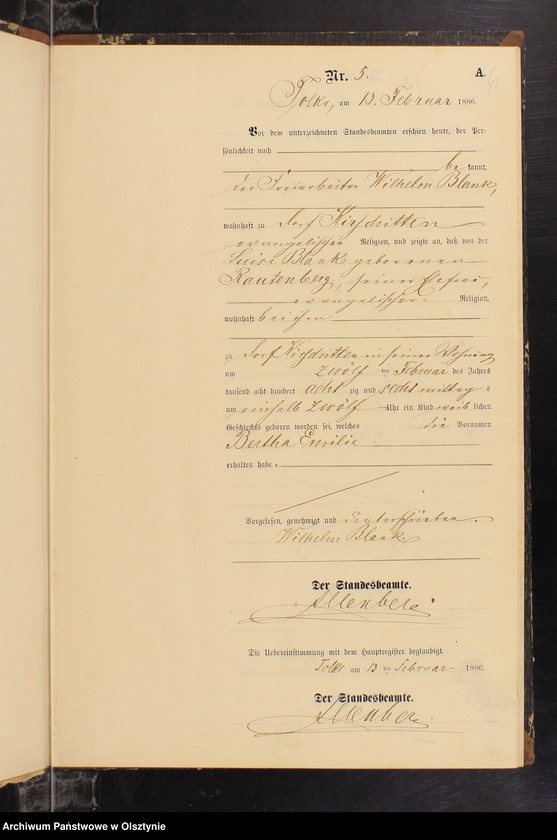 Nr. 5.
A.
Tolks, am 13. Februar 1886.
Vor dem unterzeichneten Standesbeamten erschien heute, der Per-
sönlichkeit nach
be kannt,
der Freiarbeiter Wilhelm Blank,
wohnhaft zu Dorf Kirschitten
evangelischer Religion, und zeigte an, daß von der
Luise Blank geborenen
Rautenberg, seiner Ehefrau,
evangelischer Religion,
wohnhaft bei ihm
zu Dorf Kirschitten in seiner Wohnung
am zwölf ten Februar des Jahres
tausend acht hundert acht zig und sechs mittags
um einhalb zwölf Uhr ein Kind weib lichen
Geschlechts geboren worden sei, welches die Vornamen
Bertha Emilie
erhalten habe.
Vorgelesen, genehmigt und unterschrieben.
Wilhelm Blank.
Der Standesbeamte.
Die Uebereinstimmung mit dem Hauptregister beglaubigt.
Tolks am 13 ten Februar 1886.
Der Standesbeamte.
Archiwum Państwowe w Olsztynie